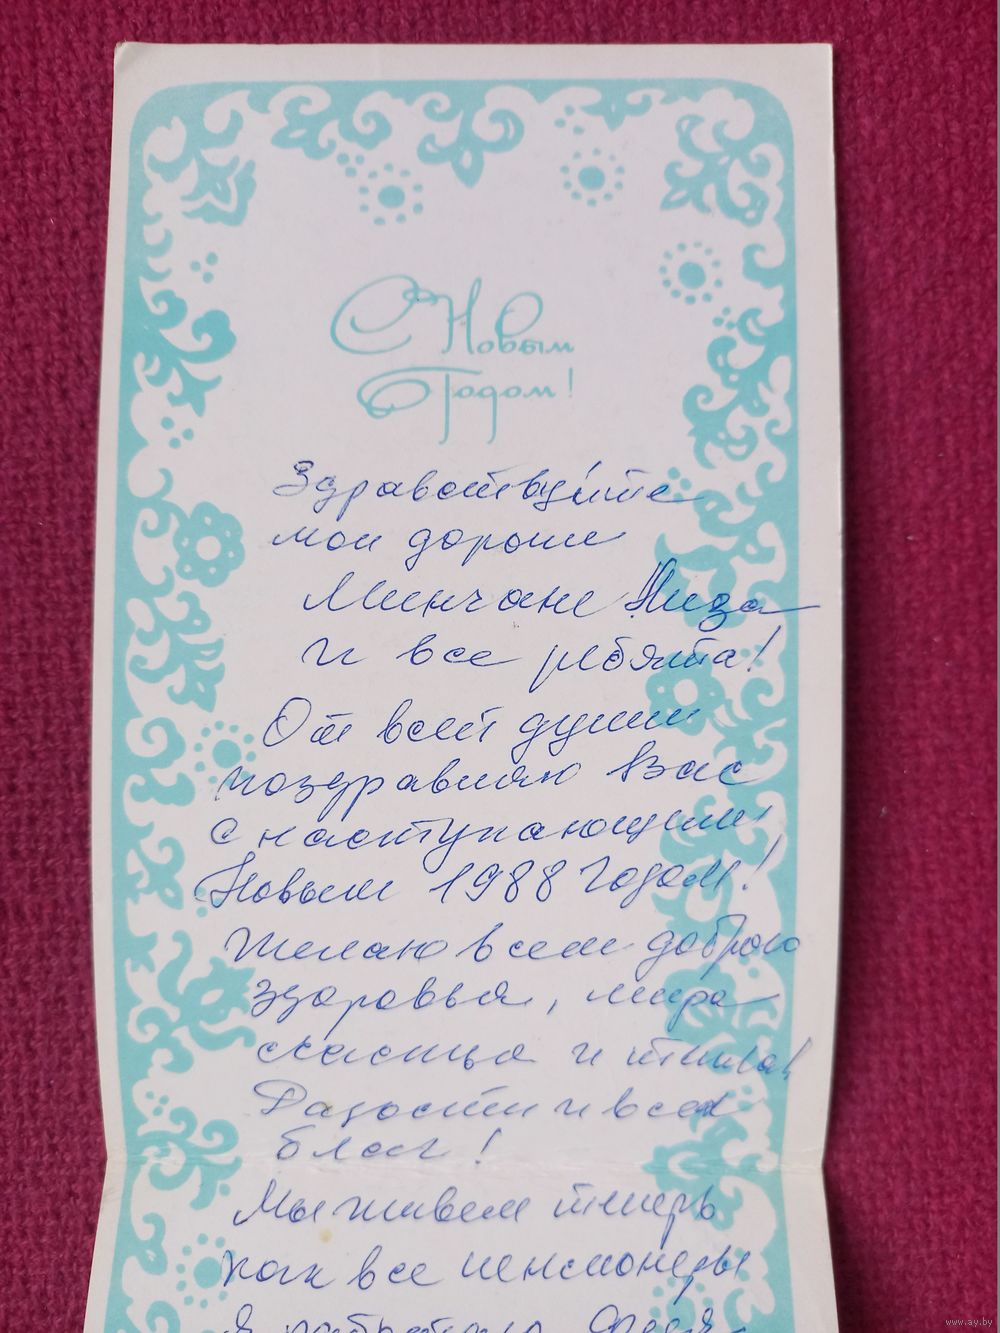 С Новым
Годом!
Здравствуйте
мои дорогие
Минчане Лиза
и все ребята!
От всей души
поздравляю Вас
с наступающим
Новым 1988 годом!
Желаю всем доброго
здоровья, мира
счастья и тепла,
Радости и всех
благ!
Мы живем теперь
как все пенсионеры
Я
www.ay.by